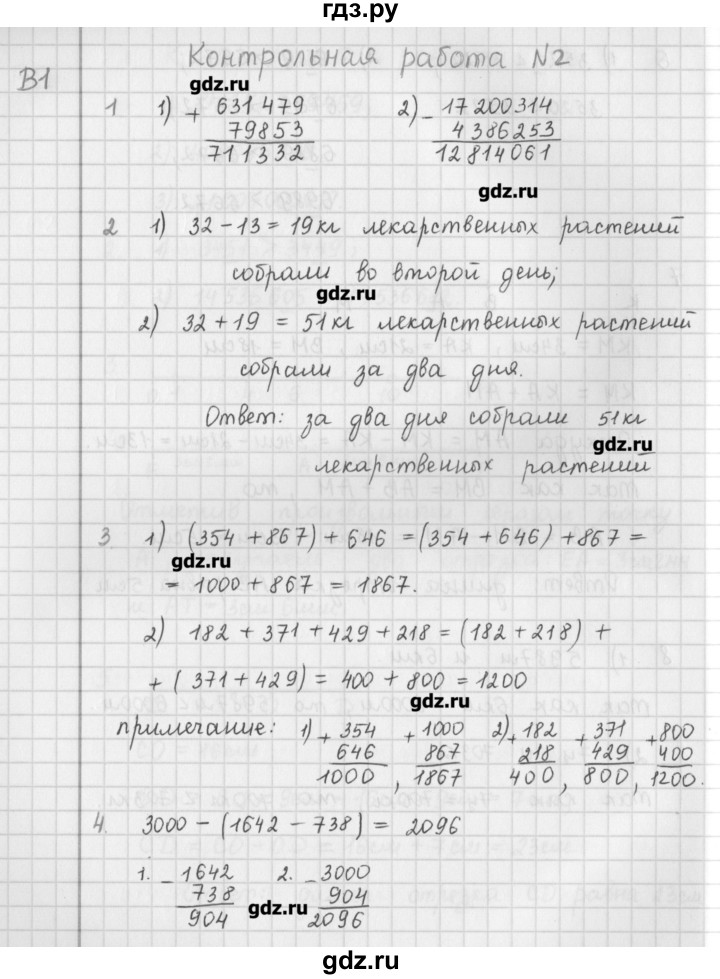 гдз.ру
Контрольная работа №2
В1
gdz.ru
1 1) + 631479 2) - 17200314
79853 4386253
711332 12814061
gdz.ru
2 1) 32 - 13 = 19 кг лекарственных растений
собрали во второй день;
gdz.ru
2) 32 + 19 = 51 кг лекарственных растений
собрали за два дня.
Ответ: за два дня собрали 51 кг
gdz.ru
лекарственных растений
3 1) (354 + 867) + 646 = (354 + 646) + 867 =
gdz.ru
= 1000 + 867 = 1867.
2) 182 + 371 + 429 + 218 = (182 + 218) +
+ (371 + 429) = 400 + 800 = 1200
gdz.ru
примечание: 1) + 354 + 1000 2) + 182 + 371 + 800
646 867 218 429 400
1000 , 1867 400 , 800 , 1200.
4. 3000 - (1642 - 738) = 2096
1. - 1642 2. - 3000
738 904
904 2096
gdz.ru
gdz.ru